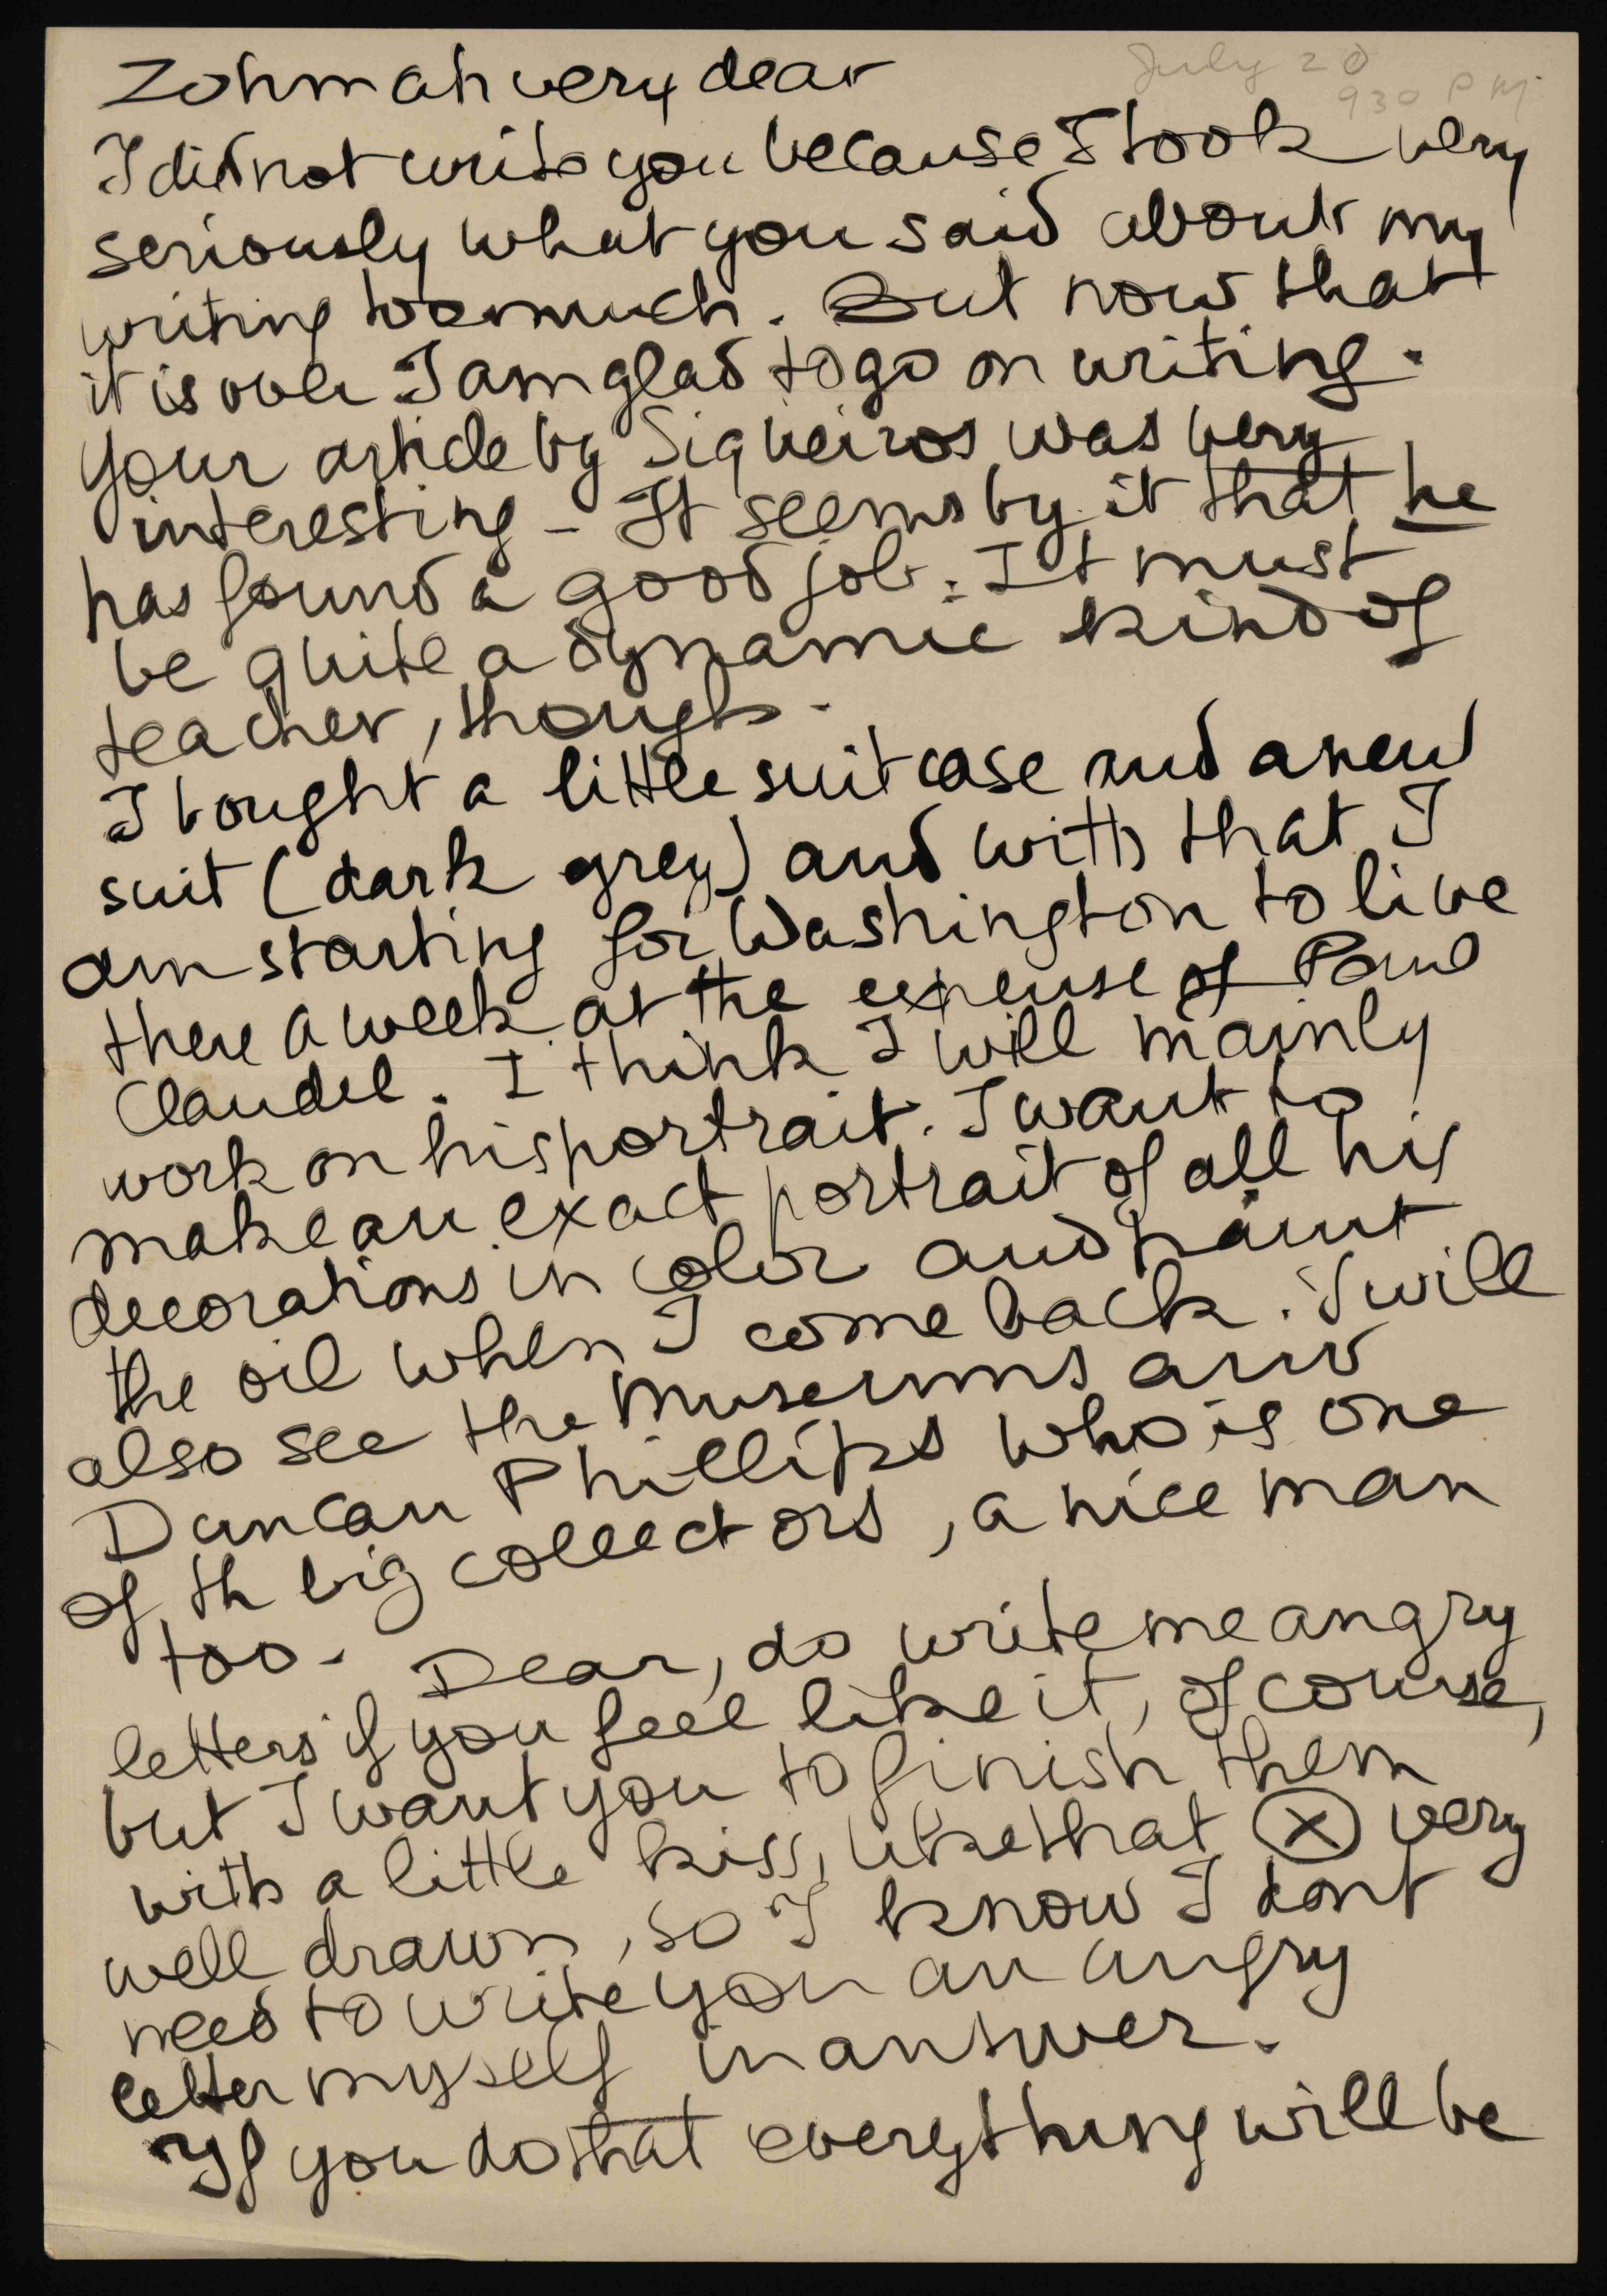 July 20
930 PM
Zohmah very dear
I did not write you because I took very
seriously what you said about my
writing too much. But now that
it is over I am glad to go on writing.
Your article by Siqueiros was very
interesting - It seems by it that he
has found a good job. It must
be quite a dynamic kind of
teacher, though.
I bought a little suitcase and a new
suit (dark grey) and with that I
am starting for Washington to live
there a week at the expense of Paul
Claudel. I think I will mainly
work on his portrait. I want to
make an exact portrait of all his
decorations in color and paint
the oil when I come back. I will
also see the museums and
Duncan Phillips who is one
of th big collectors, a nice man
too. Dear, do write me angry
letters if you feel like it, of course,
but I want you to finish them
with a little kiss, like that X very
well drawn, so I know I dont
need to write you an angry
letter myself in answer.
If you do that everything will be